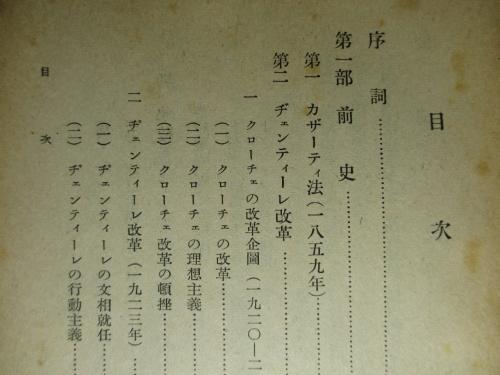 目次
序詞
第一部 前史
第一 カザーティ法(一八五九年)
第二 ヂェンティーレ改革
一 クローチェの改革企圖(一九二〇—二
(一) クローチェの改革
(二) クローチェの理想主義
(三) クローチェ改革の頓挫
二 ヂェンティーレ改革(一九二三年)
(一) ヂェンティーレの文相就任
(二) ヂェンティーレの行動主義
目次